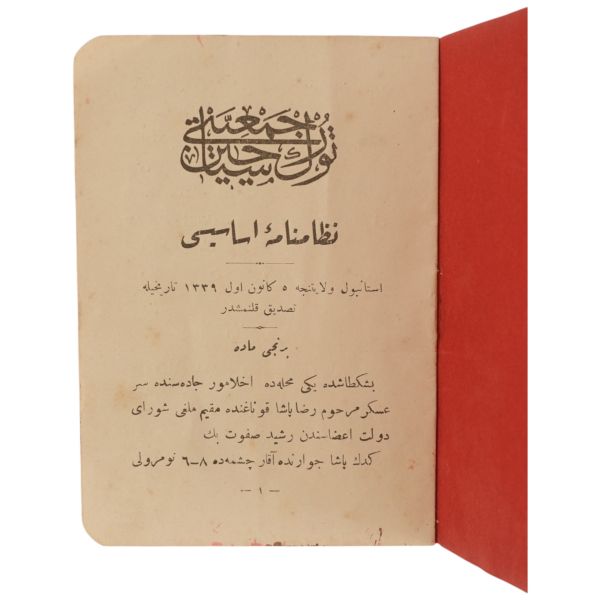 تورك سياحين جمعيتى
نظامنامهٔ اساسیسی
استانبول ولایتنجه ٥ كانون اول ١٣٣٩ تاریخیله
تصدیق قلنمشدر
برنجی ماده
بشكطاشده یكی محله‌ده اخلامور جاده‌سنده سر
عسكر مرحوم رضا پاشا قوناغنده مقیم ملغی شورای
دولت اعضاسندن رشید صفوت بك
كدك پاشا جوارنده آقار چشمه‌ده ٨-٦ نومرولی
— ١ —